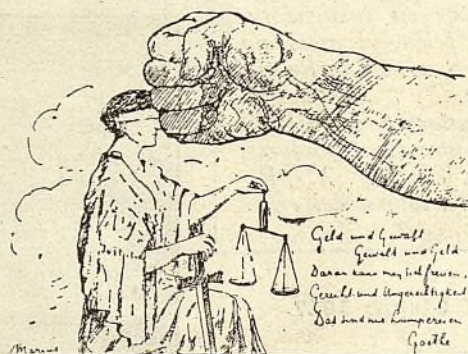 Geld und Gewalt
Gewalt und Geld
Daran kann man sich freuen.
Gerecht- und Ungerechtigkeit
Das sind nur Lumpereien
Goethe
Marius